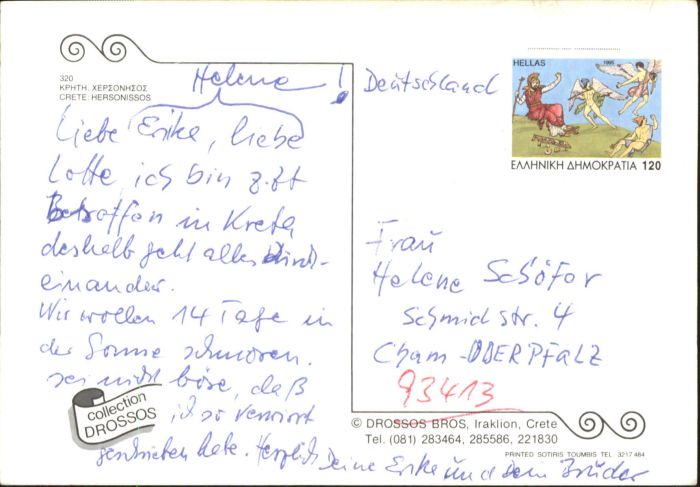 320
ΚΡΗΤΗ. ΧΕΡΣΟΝΗΣΟΣ
CRETE: HERSONISSOS
Helene!
Liebe Erike, liebe
Lotte, ich bin z.Zt
in Kreta
deshalb geht alles durch-
einander.
Wir wollen 14 Tage in
der Sonne schmoren.
sei nicht böse, daß
ich so verwirrt
geschrieben habe. Herzlichst Deine Erike und dein Brüder
collection
DROSSOS
Deutschland
HELLAS 1995
ΕΛΛΗΝΙΚΗ ΔΗΜΟΚΡΑΤΙΑ 120
Frau
Helene Schöfer
Schmidstr. 4
Cham-OBERPFALZ
93413
© DROSSOS BROS, Iraklion, Crete
Tel. (081) 283464, 285586, 221830
PRINTED SOTIRIS TOUMBIS TEL. 3217 484